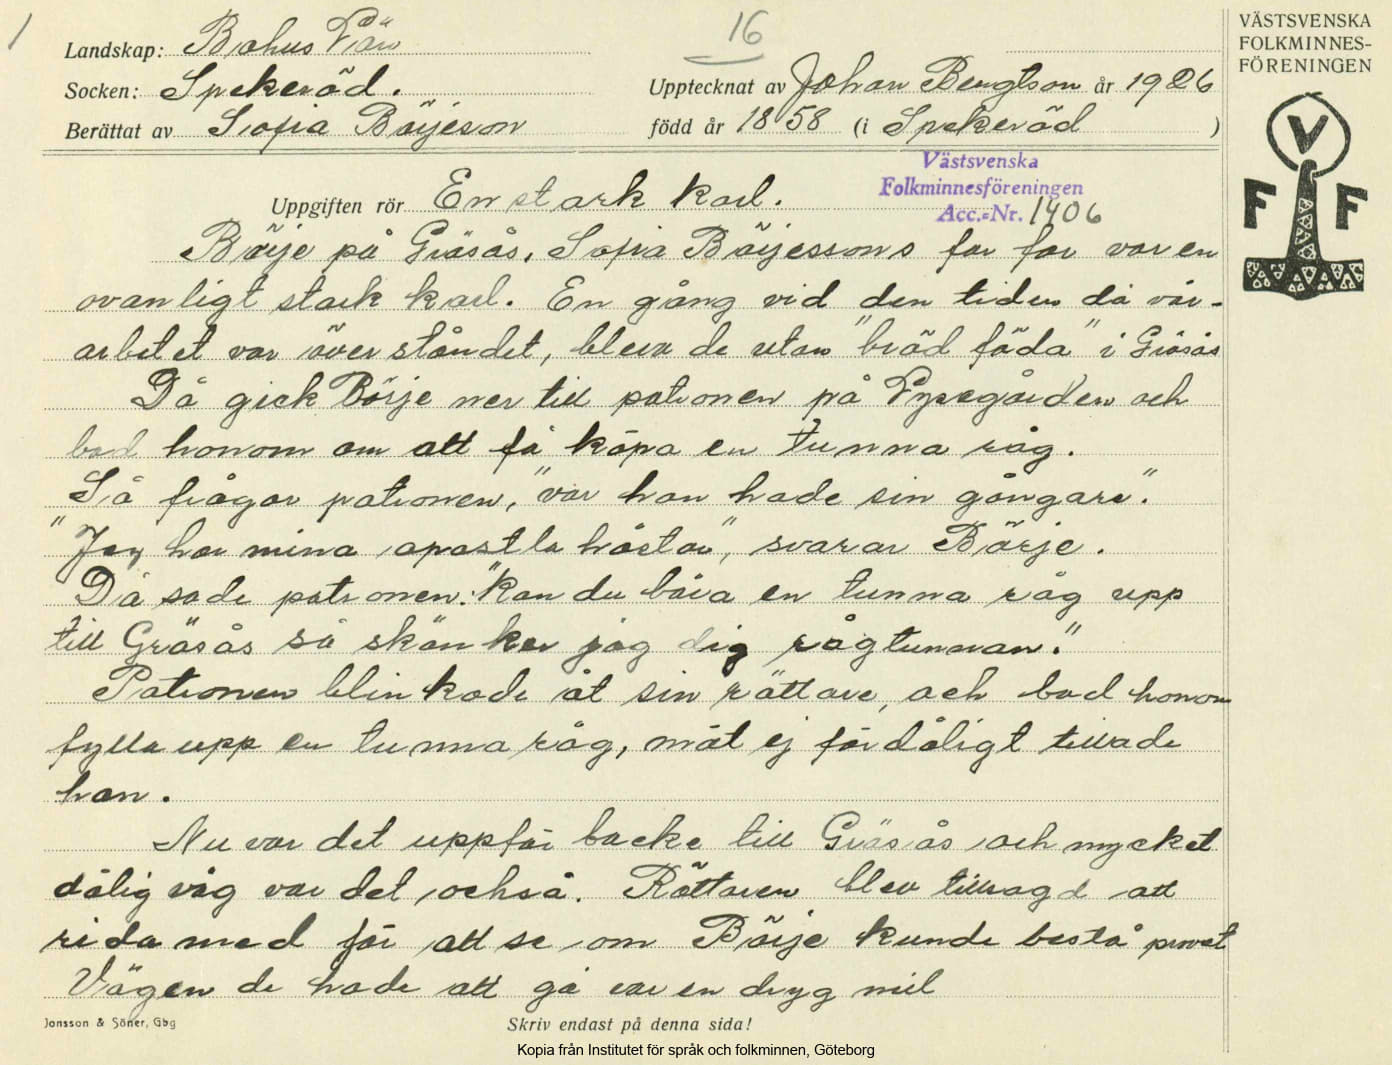 16
VÄSTSVENSKA
FOLKMINNES-
FÖRENINGEN
Landskap: Bohus Län
Socken: Spekeröd.
Upptecknat av Johan Bengtson år 1926
Berättat av Sofia Börjeson
född år 1858 (i Spekeröd )
Västsvenska
Folkminnesföreningen
Acc.=Nr. 1406
V
F F
Uppgiften rör En stark karl.
Börje på Gräsås, Sofia Börjessons far far var en
ovanligt stark karl. En gång vid den tiden då vår-
arbetet var överståndet, blevo de utan "bröd föda" i Gräsås
Då gick Börje ner till patronen på Lysegården och
bad honom om att få köpa en tunna råg.
Så frågar patronen, "var han hade sin gångare".
"Jag har mina apostla hästar", svarar Börje.
Då sade patronen: "kan du bära en tunna råg upp
till Gräsås så skänker jag dig rågtunnan."
Patronen blinkade åt sin rättare, och bad honom
fylla upp en tunna råg, mät ej för dåligt tillade
han.
Nu var det uppför backe till Gräsås och mycket
dålig väg var det också. Rättaren blev tillsagd att
rida med för att se om Börje kunde bestå provet
Vägen de hade att gå var en dryg mil
Jonsson & Söner, Gbg
Skriv endast på denna sida!
Kopia från Institutet för språk och folkminnen, Göteborg